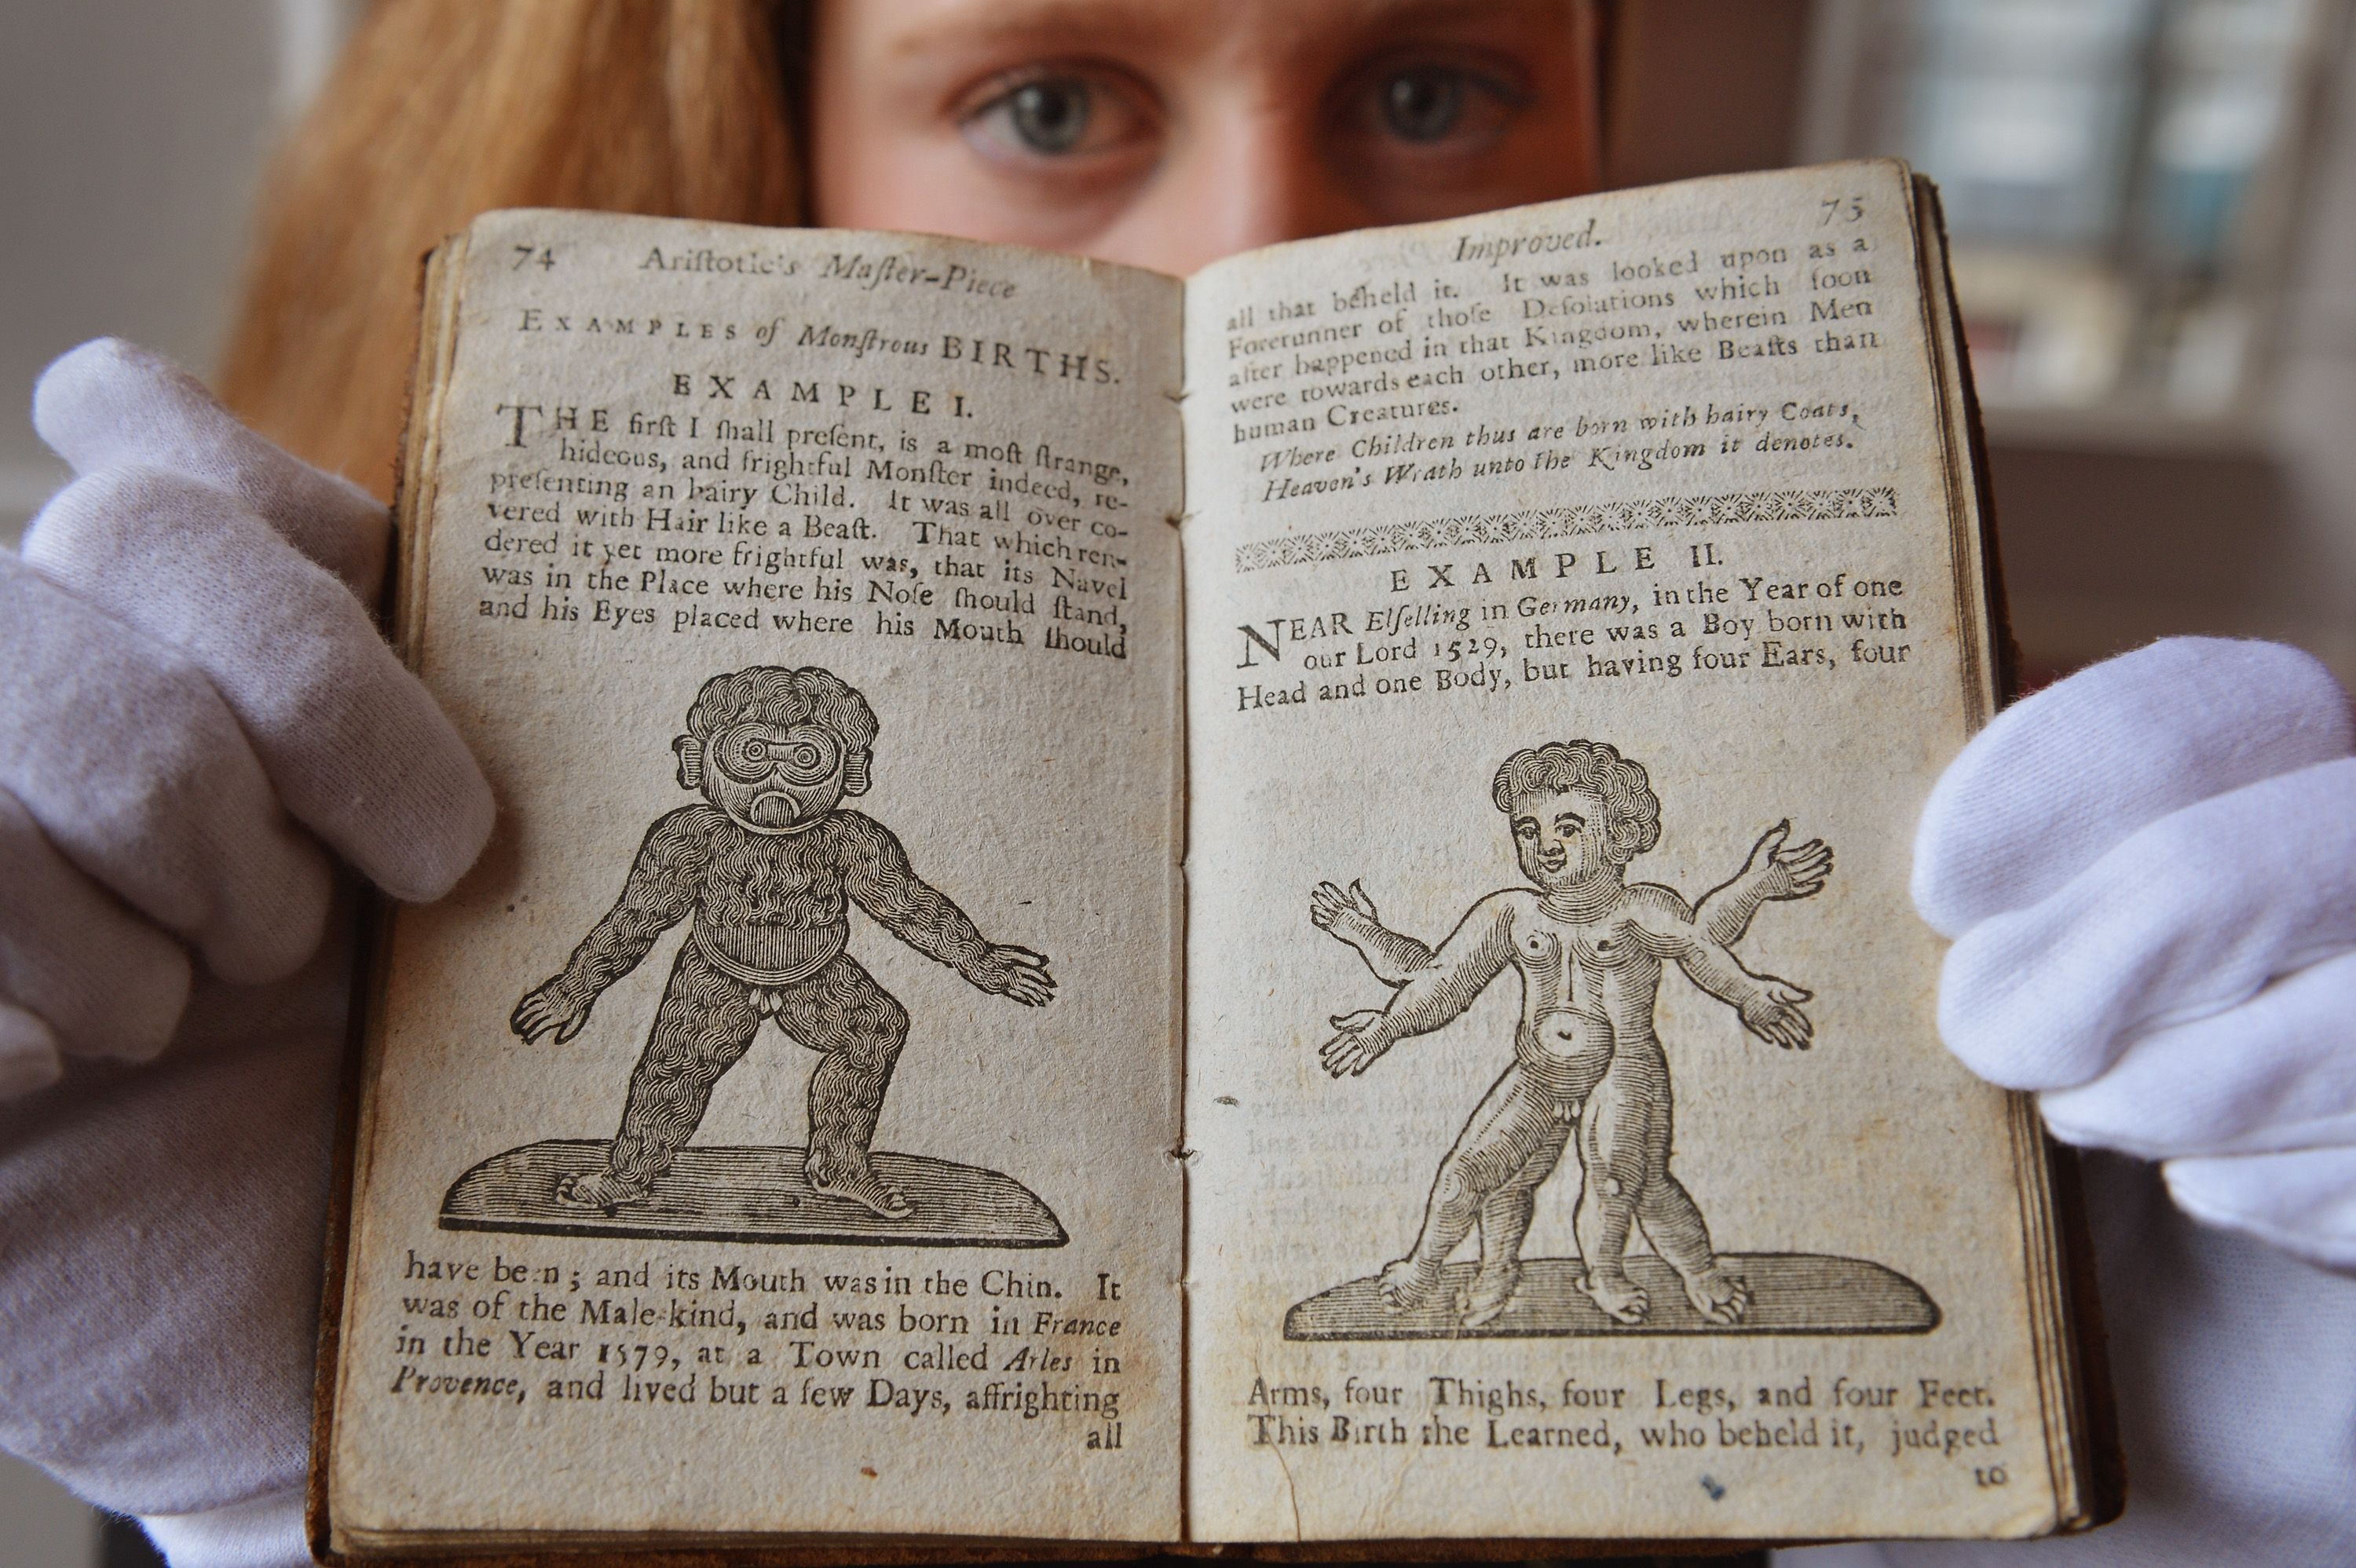 74 Ariſtotle's Maſter-Piece
EXAMPLES of Monſtrous BIRTHS.
EXAMPLE I.
THE firſt I ſhall preſent, is a moſt ſtrange,
hideous, and frightful Monſter indeed, re-
preſenting an hairy Child. It was all over co-
vered with Hair like a Beaſt. That which ren-
dered it yet more frightful was, that its Navel
was in the Place where his Noſe ſhould ſtand,
and his Eyes placed where his Mouth ſhould
have been; and its Mouth was in the Chin. It
was of the Male-kind, and was born in France
in the Year 1579, at a Town called Arles in
Provence, and lived but a few Days, affrighting
all
Improved. 75
all that beheld it. It was looked upon as a
Forerunner of thoſe Deſolations which ſoon
after happened in that Kingdom, wherein Men
were towards each other, more like Beaſts than
human Creatures.
Where Children thus are born with hairy Coats,
Heaven's Wrath unto the Kingdom it denotes.
EXAMPLE II.
NEAR Elſelling in Germany, in the Year of one
our Lord 1529, there was a Boy born with
Head and one Body, but having four Ears, four
Arms, four Thighs, four Legs, and four Feet.
This Birth the Learned, who beheld it, judged
to